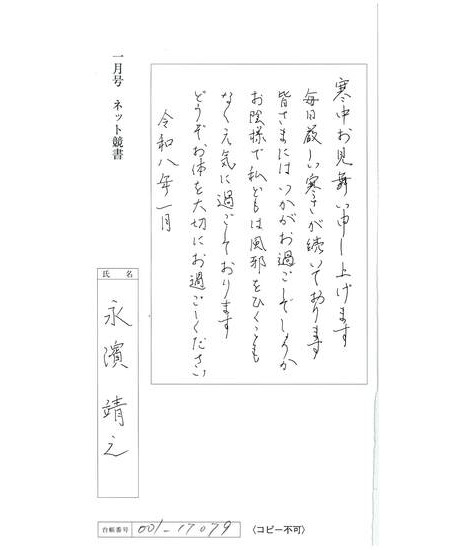 寒中お見舞い申し上げます
毎日厳しい寒さが続いております
皆さまにはいかがお過ごしでしょうか
お陰様で私どもは風邪をひくことも
なく元気に過ごしております
どうぞお体を大切にお過ごしください
令和八年一月
一月号 ネット競書
氏名
永濱 靖之
台帳番号 001-17079 〈コピー不可〉